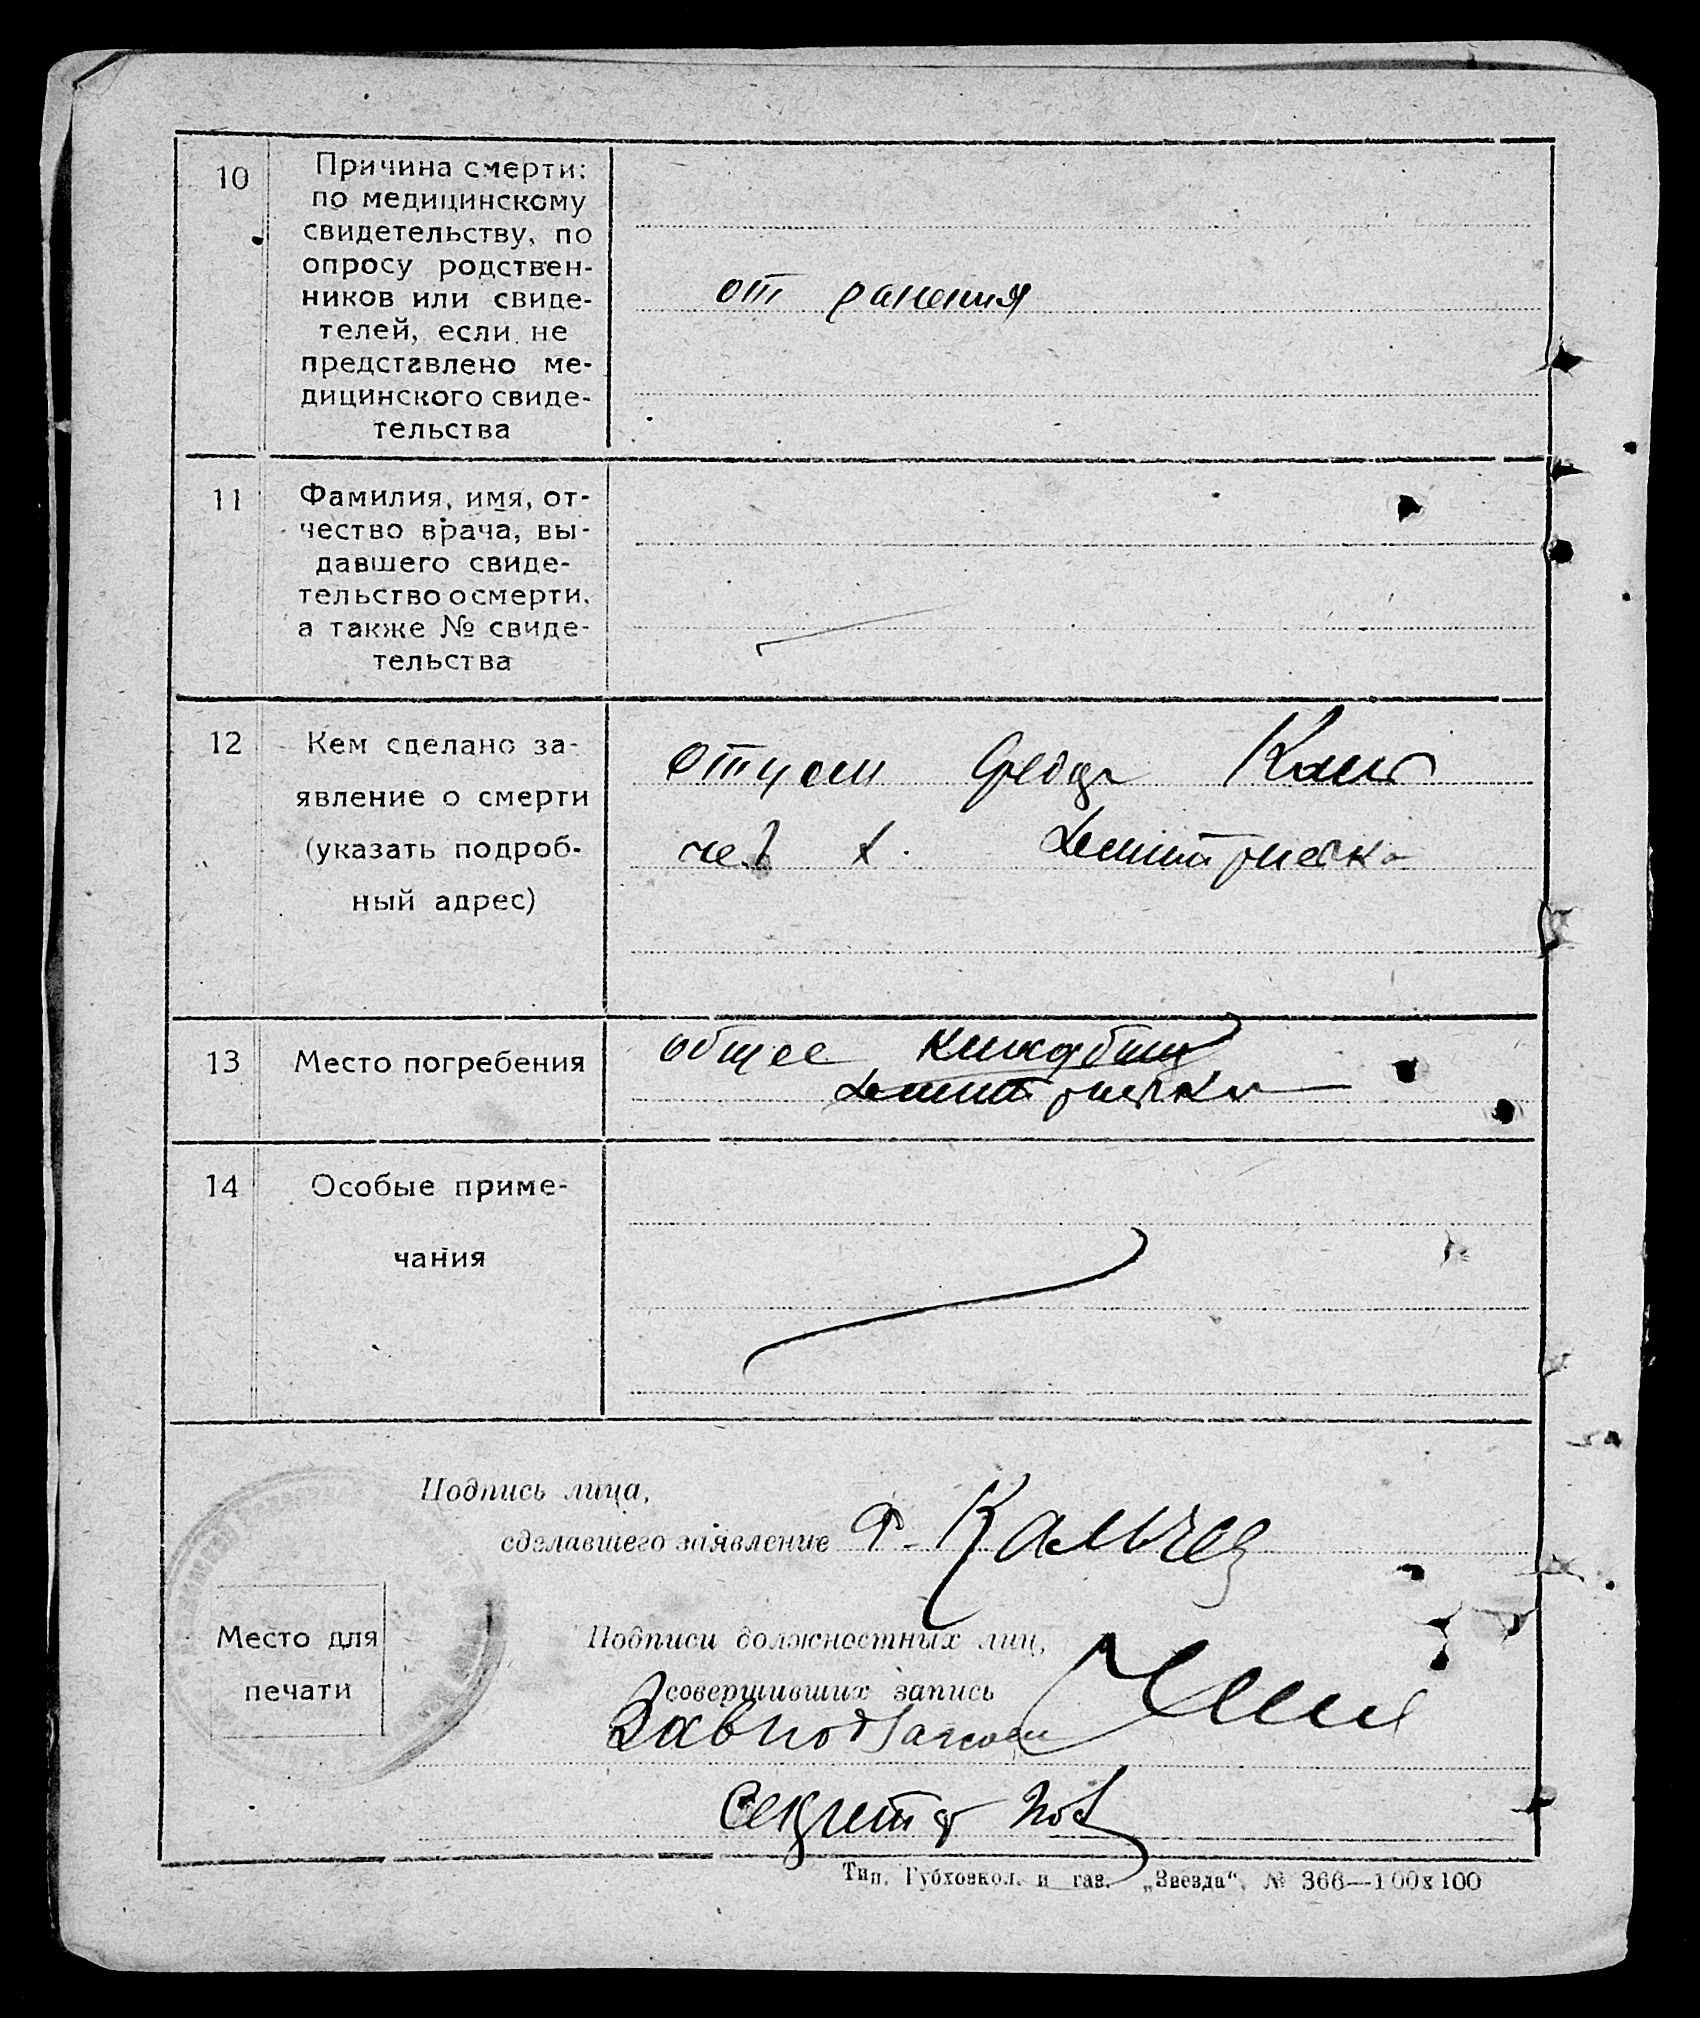 10
Причина смерти:
по медицинскому
свидетельству, по
опросу родствен-
ников или свиде-
телей, если не
представлено ме-
дицинского свиде-
тельства
от ранения
11
Фамилия, имя, от-
чество врача, вы-
давшего свиде-
тельство о смерти,
а также № свиде-
тельства
12
Кем сделано за-
явление о смерти
(указать подроб-
ный адрес)
отцом Каль
чев х.
13
Место погребения
общее
14
Особые приме-
чания
Подпись лица,
сделавшего заявление Ф. Кальчев
Место для
печати
Подписи должностных лиц,
совершивших запись
Завподзагсом
Секретар
Тип. Губхозкол. и газ. „Звезда“. № 366—100х100